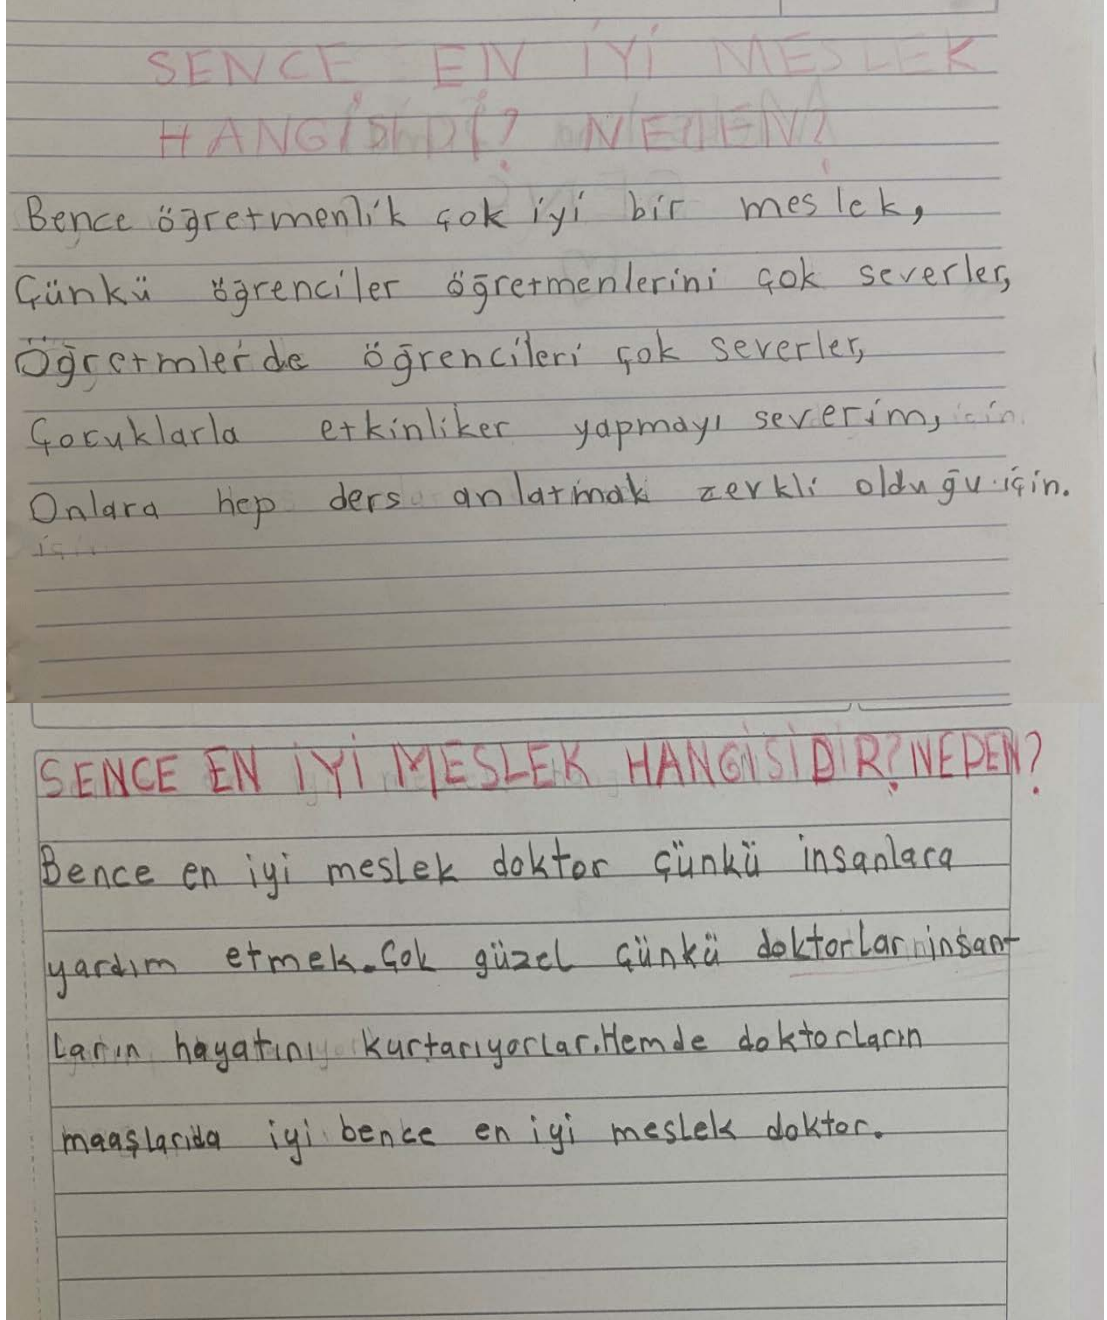 SENCE EN İYİ MESLEK
HANGİSİDİ? NEDEN?
Bence öğretmenlik çok iyi bir meslek,
Çünkü öğrenciler öğretmenlerini çok severler,
Öğretmlerde öğrencileri çok severler,
Çocuklarla etkinliker yapmayı severim, için
Onlara hep ders anlatmak zevkli olduğu için.
için
SENCE EN İYİ MESLEK HANGİSİDİR? NEDEN?
Bence en iyi meslek doktor çünkü insanlara
yardım etmek. Çok güzel çünkü doktorlar insan
ların hayatını kurtarıyorlar. Hemde doktorların
maaşlarıda iyi bence en iyi meslek doktor.